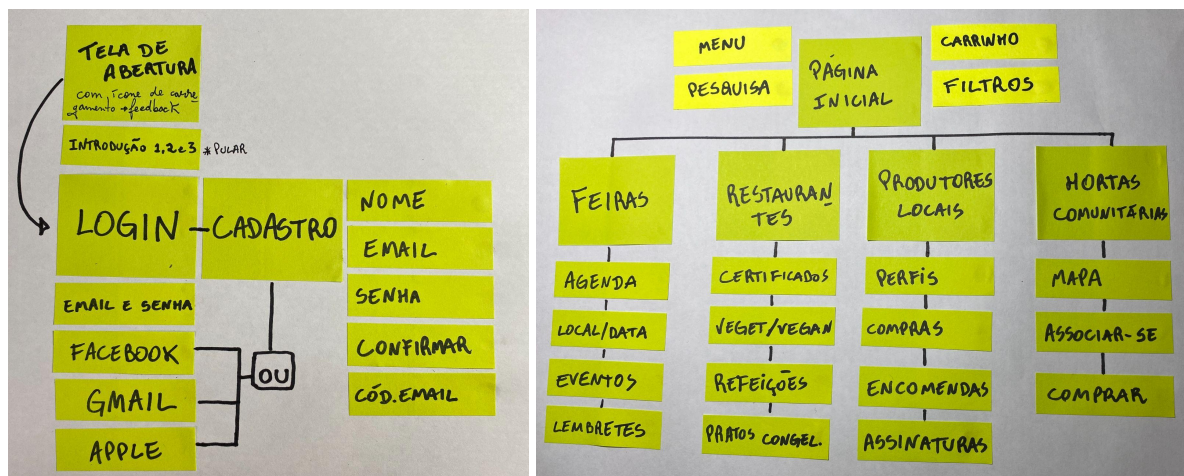 TELA DE
ABERTURA
com ícone de carre
gamento → feedback
INTRODUÇÃO 1,2 e 3 * PULAR
LOGIN
CADASTRO
EMAIL E SENHA
FACEBOOK
GMAIL
APPLE
OU
NOME
EMAIL
SENHA
CONFIRMAR
CÓD. EMAIL
MENU
PESQUISA
PÁGINA
INICIAL
CARRINHO
FILTROS
FEIRAS
AGENDA
LOCAL/DATA
EVENTOS
LEMBRETES
RESTAURAN
TES
CERTIFICADOS
VEGET/VEGAN
REFEIÇÕES
PRATOS CONGEL.
PRODUTORES
LOCAIS
PERFIS
COMPRAS
ENCOMENDAS
ASSINATURAS
HORTAS
COMUNITÁRIAS
MAPA
ASSOCIAR-SE
COMPRAR